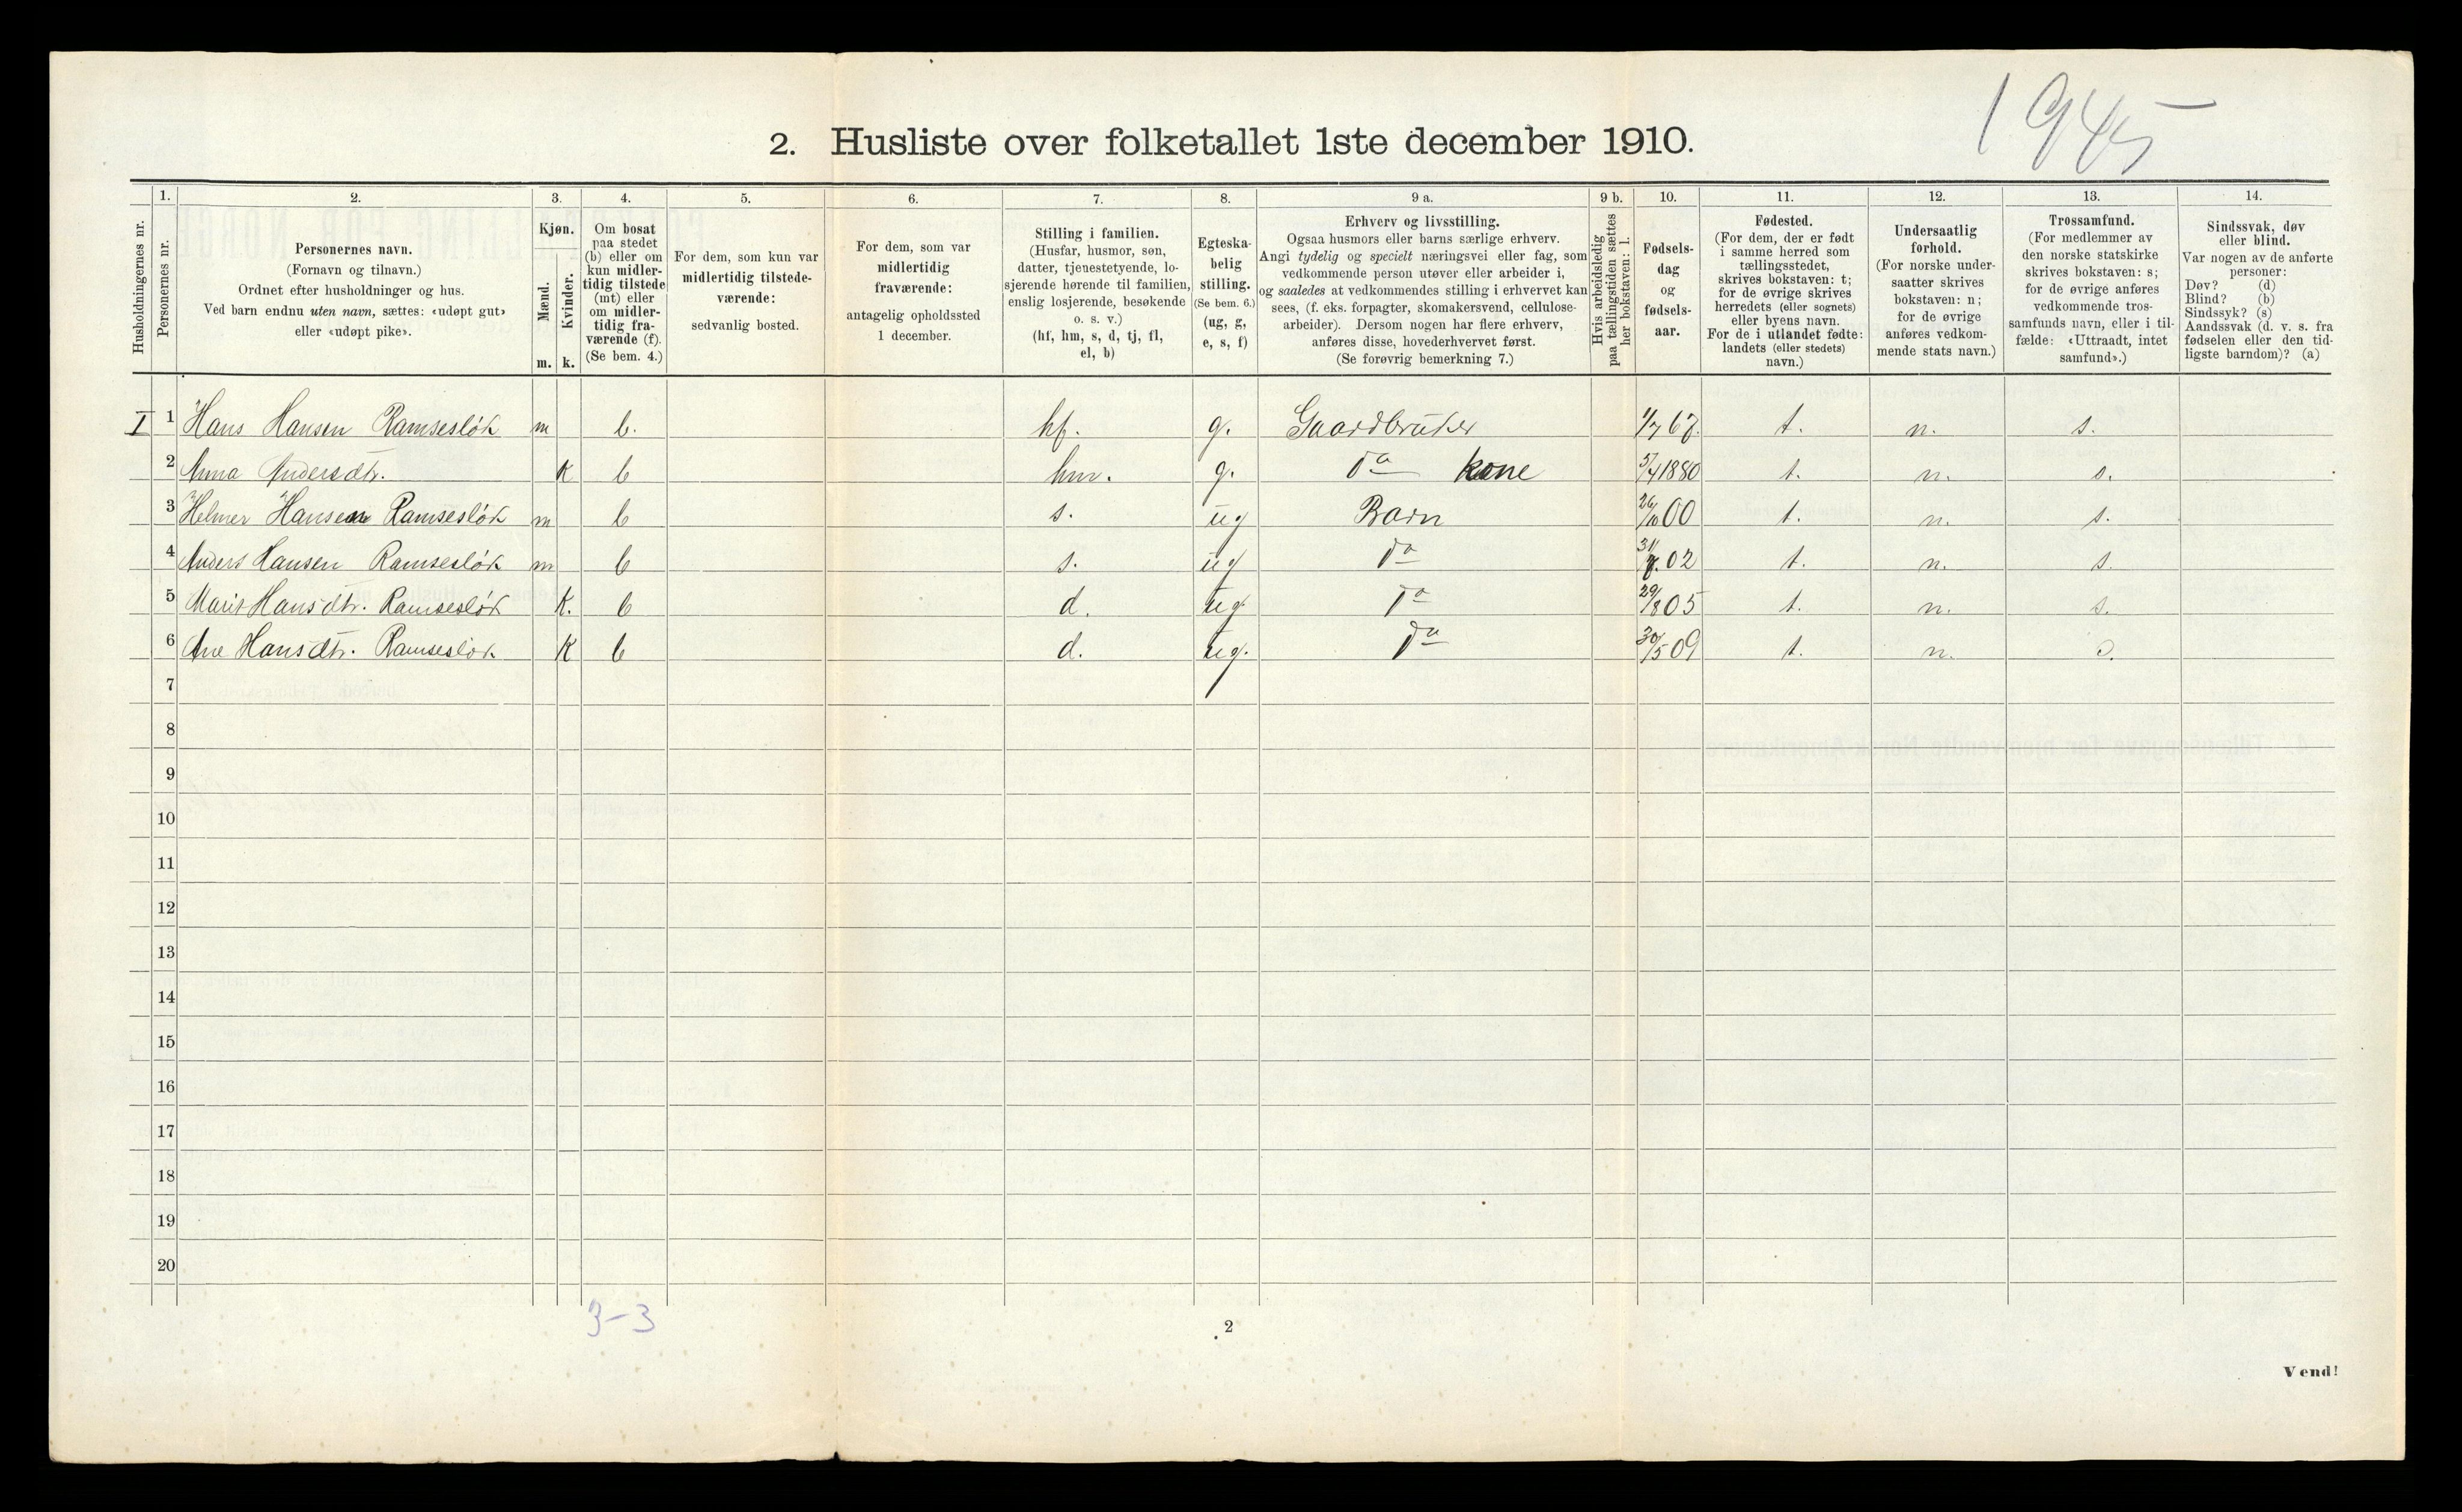 1945
2. Husliste over folketallet 1ste december 1910.
Husholdningernes nr.
1.
Personernes nr.
2.
Personernes navn.
(Fornavn og tilnavn.)
Ordnet efter husholdninger og hus.
Ved barn endnu uten navn, sættes: «udøpt gut»
eller «udøpt pike».
3.
Kjøn.
Mænd.
Kvinder.
m. k.
4.
Om bosat
paa stedet
(b) eller om
kun midler-
tidig tilstede
(mt) eller
om midler-
tidig fra-
værende (f).
(Se bem. 4.)
5.
For dem, som kun var
midlertidig tilstede-
værende:
sedvanlig bosted.
6.
For dem, som var
midlertidig
fraværende:
antagelig opholdssted
1 december.
7.
Stilling i familien.
(Husfar, husmor, søn,
datter, tjenestetyende, lo-
sjerende hørende til familien,
enslig losjerende, besøkende
o. s. v.)
(hf, hm, s, d, tj, fl,
el, b)
8.
Egteska-
belig
stilling.
(Se bem. 6.)
(ug, g,
e, s, f)
9 a.
Erhverv og livsstilling.
Ogsaa husmors eller barns særlige erhverv.
Angi tydelig og specielt næringsvei eller fag, som
vedkommende person utøver eller arbeider i,
og saaledes at vedkommendes stilling i erhvervet kan
sees, (f. eks. forpagter, skomakersvend, cellulose-
arbeider). Dersom nogen har flere erhverv,
anføres disse, hovederhvervet først.
(Se forøvrig bemerkning 7.)
9 b.
Hvis arbeidsledig
paa tællingstiden sættes
her bokstaven: l.
10.
Fødsels-
dag
og
fødsels-
aar.
11.
Fødested.
(For dem, der er født
i samme herred som
tællingsstedet,
skrives bokstaven: t;
for de øvrige skrives
herredets (eller sognets)
eller byens navn.
For de i utlandet fødte:
landets (eller stedets)
navn.)
12.
Undersaatlig
forhold.
(For norske under-
saatter skrives
bokstaven: n;
for de øvrige
anføres vedkom-
mende stats navn.)
13.
Trossamfund.
(For medlemmer av
den norske statskirke
skrives bokstaven: s;
for de øvrige anføres
vedkommende tros-
samfunds navn, eller i til-
fælde: «Uttraadt, intet
samfund».)
14.
Sindssvak, døv
eller blind.
Var nogen av de anførte
personer:
Døv? (d)
Blind? (b)
Sindssyk? (s)
Aandssvak (d. v. s. fra
fødselen eller den tid-
ligste barndom)? (a)
I 1 Hans Hansen Ramsesløk m b. hf. g. Gaardbruker 1/7 67. t. n. s.
2 Anna Andersdtr. K b hm. g. Do kone 5/4 1880 t. n. s.
3 Helmer Hansen Ramsesløk m b s. ug Barn 26/10 00 t. n. s.
4 Anders Hansen Ramsesløk m b s. ug Do 31/7. 02 t. n. s.
5 Marit Hansdtr. Ramsesløk K. b d. ug. Do 29/8 05 t. n. s.
6 Ane Hansdtr. Ramsesløk K b d. ug. Do 30/5 09 t. n. s.
7
8
9
10
11
12
13
14
15
16
17
18
19
20
3-3
2
Vend!